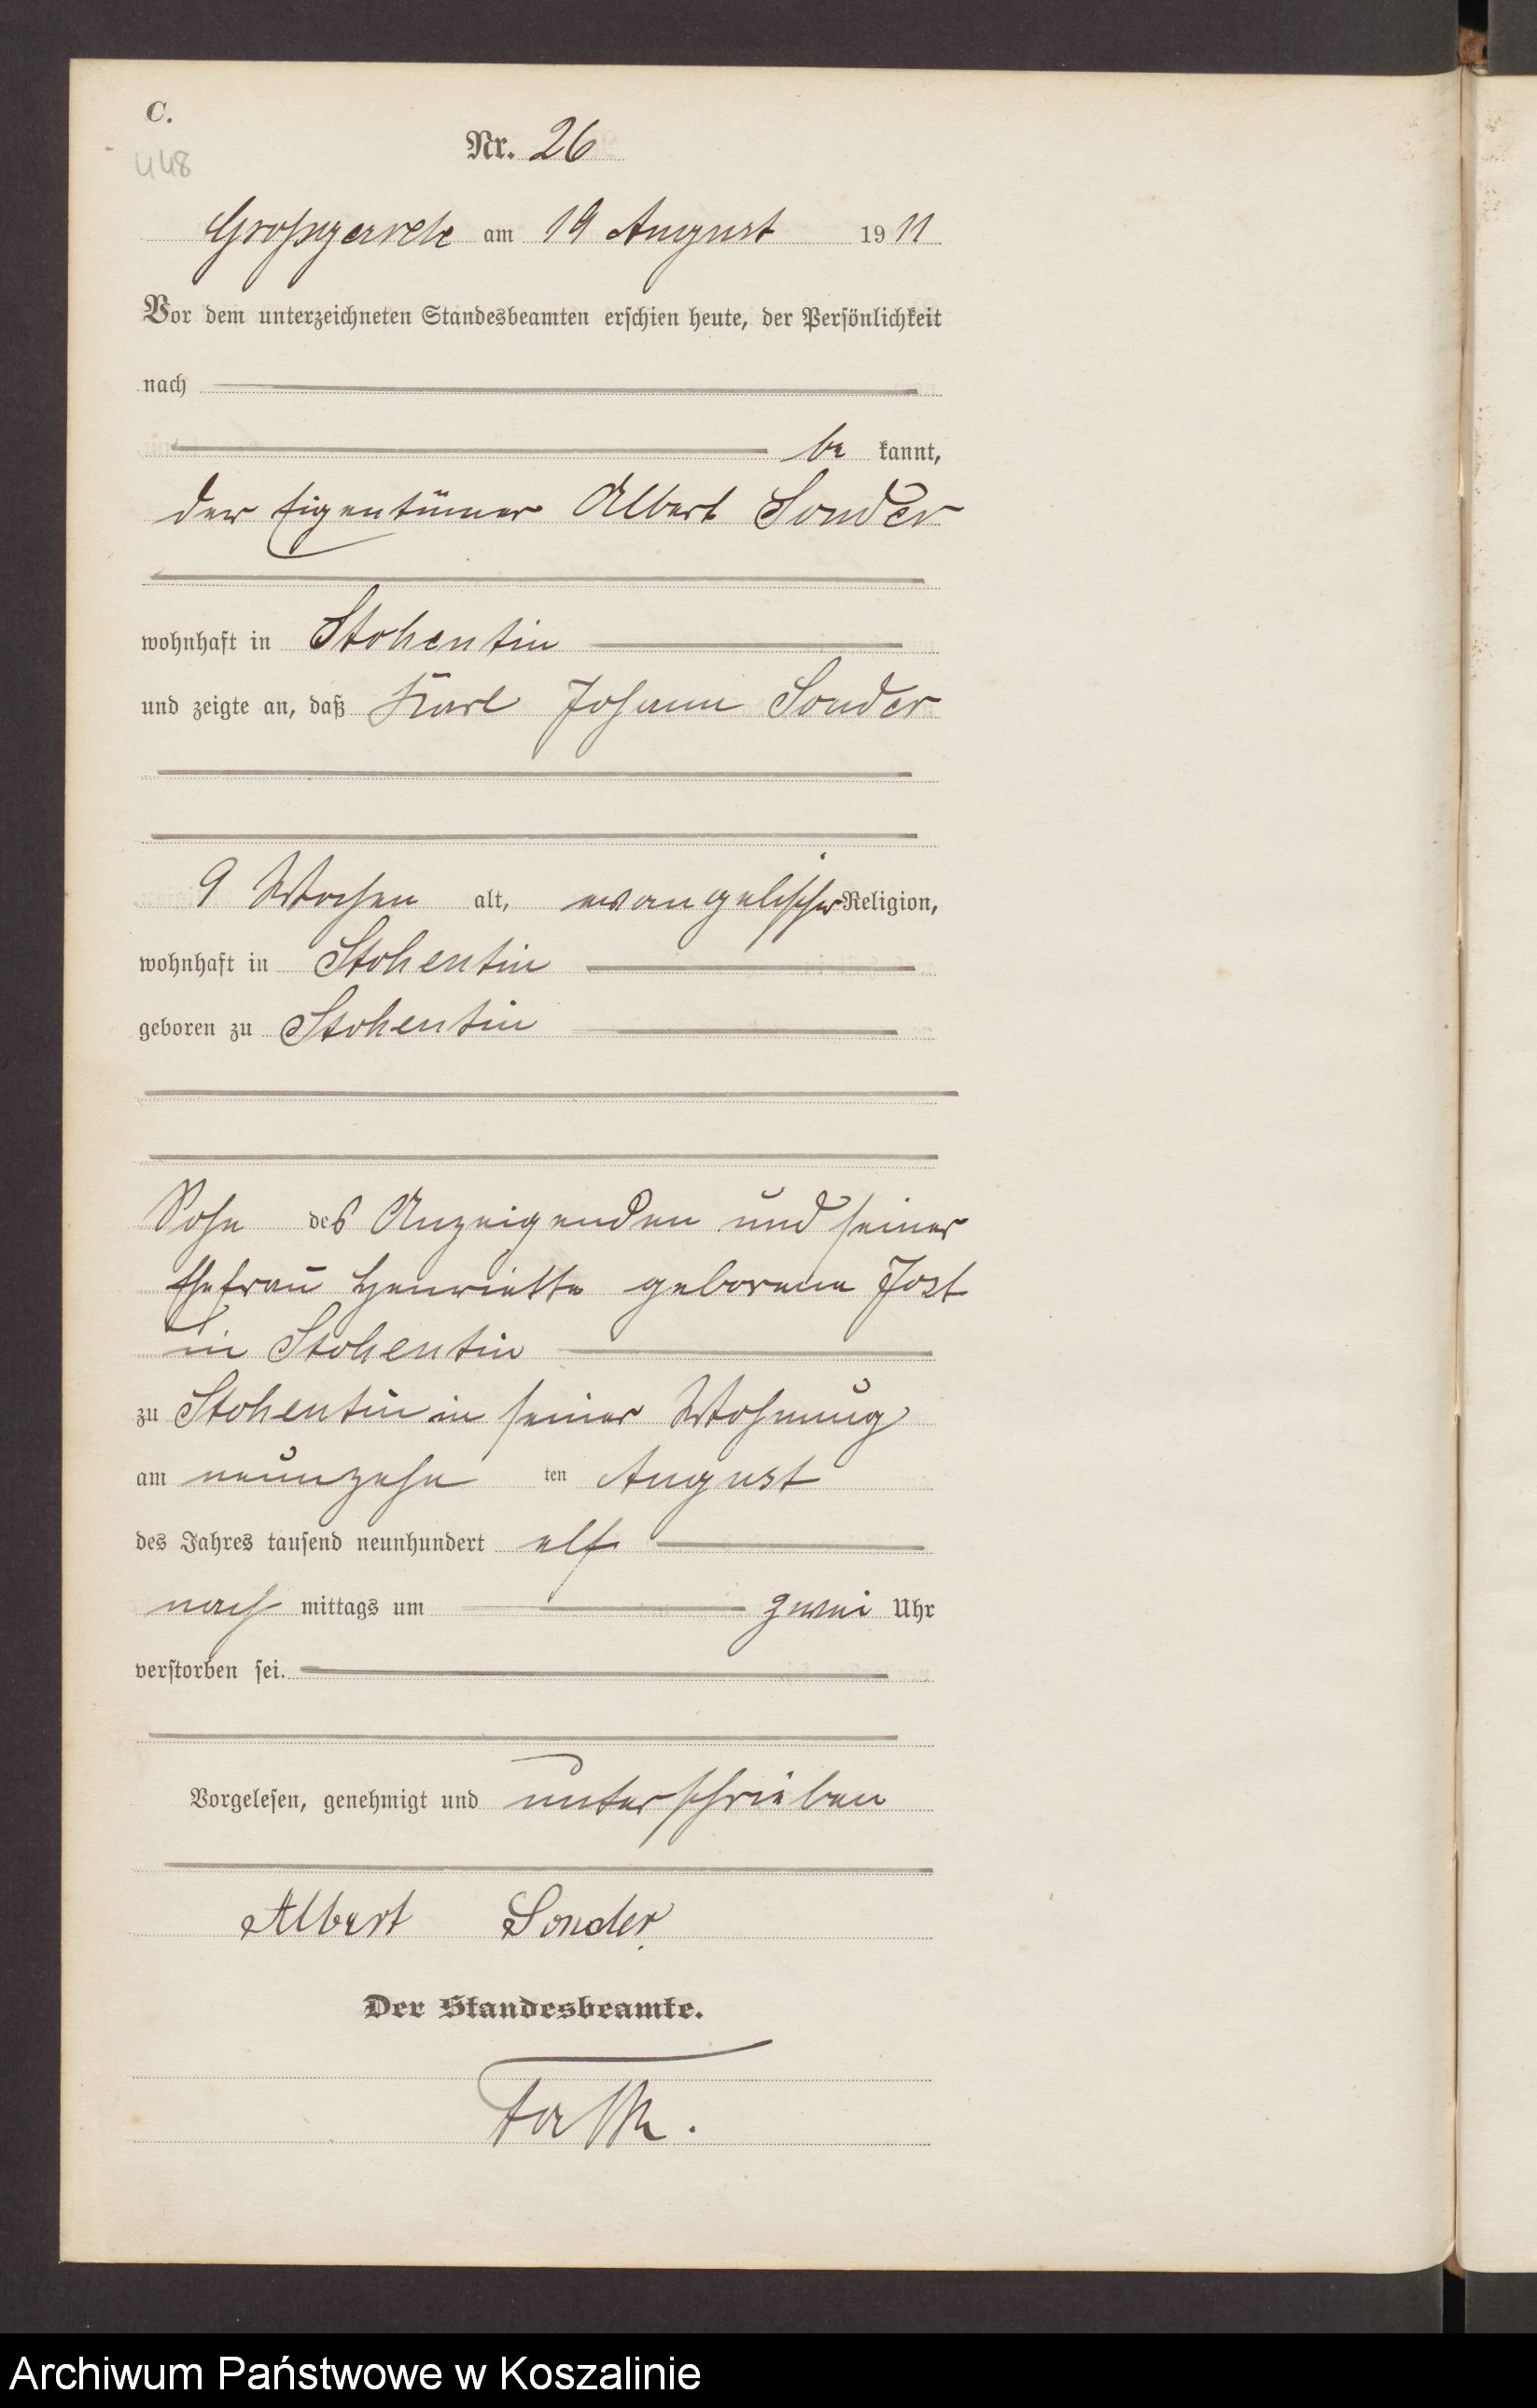 C.
448
Nr. 26
Großgarde am 19 August 1911
Vor dem unterzeichneten Standesbeamten erschien heute, der Persönlichkeit
nach
be kannt,
der Eigentümer Albert Sonder
wohnhaft in Stohentin
und zeigte an, daß Karl Johann Sonder
9 Wochen alt, evangelischer Religion,
wohnhaft in Stohentin
geboren zu Stohentin
Sohn des Anzeigenden und seiner
Ehefrau Henriette geborene Jost
in Stohentin
zu Stohentin in seiner Wohnung
am neunzehn ten August
des Jahres tausend neunhundert elf
nach mittags um zwei Uhr
verstorben sei.
Vorgelesen, genehmigt und unterschrieben
Albert Sonder
Der Standesbeamte.
Archiwum Państwowe w Koszalinie